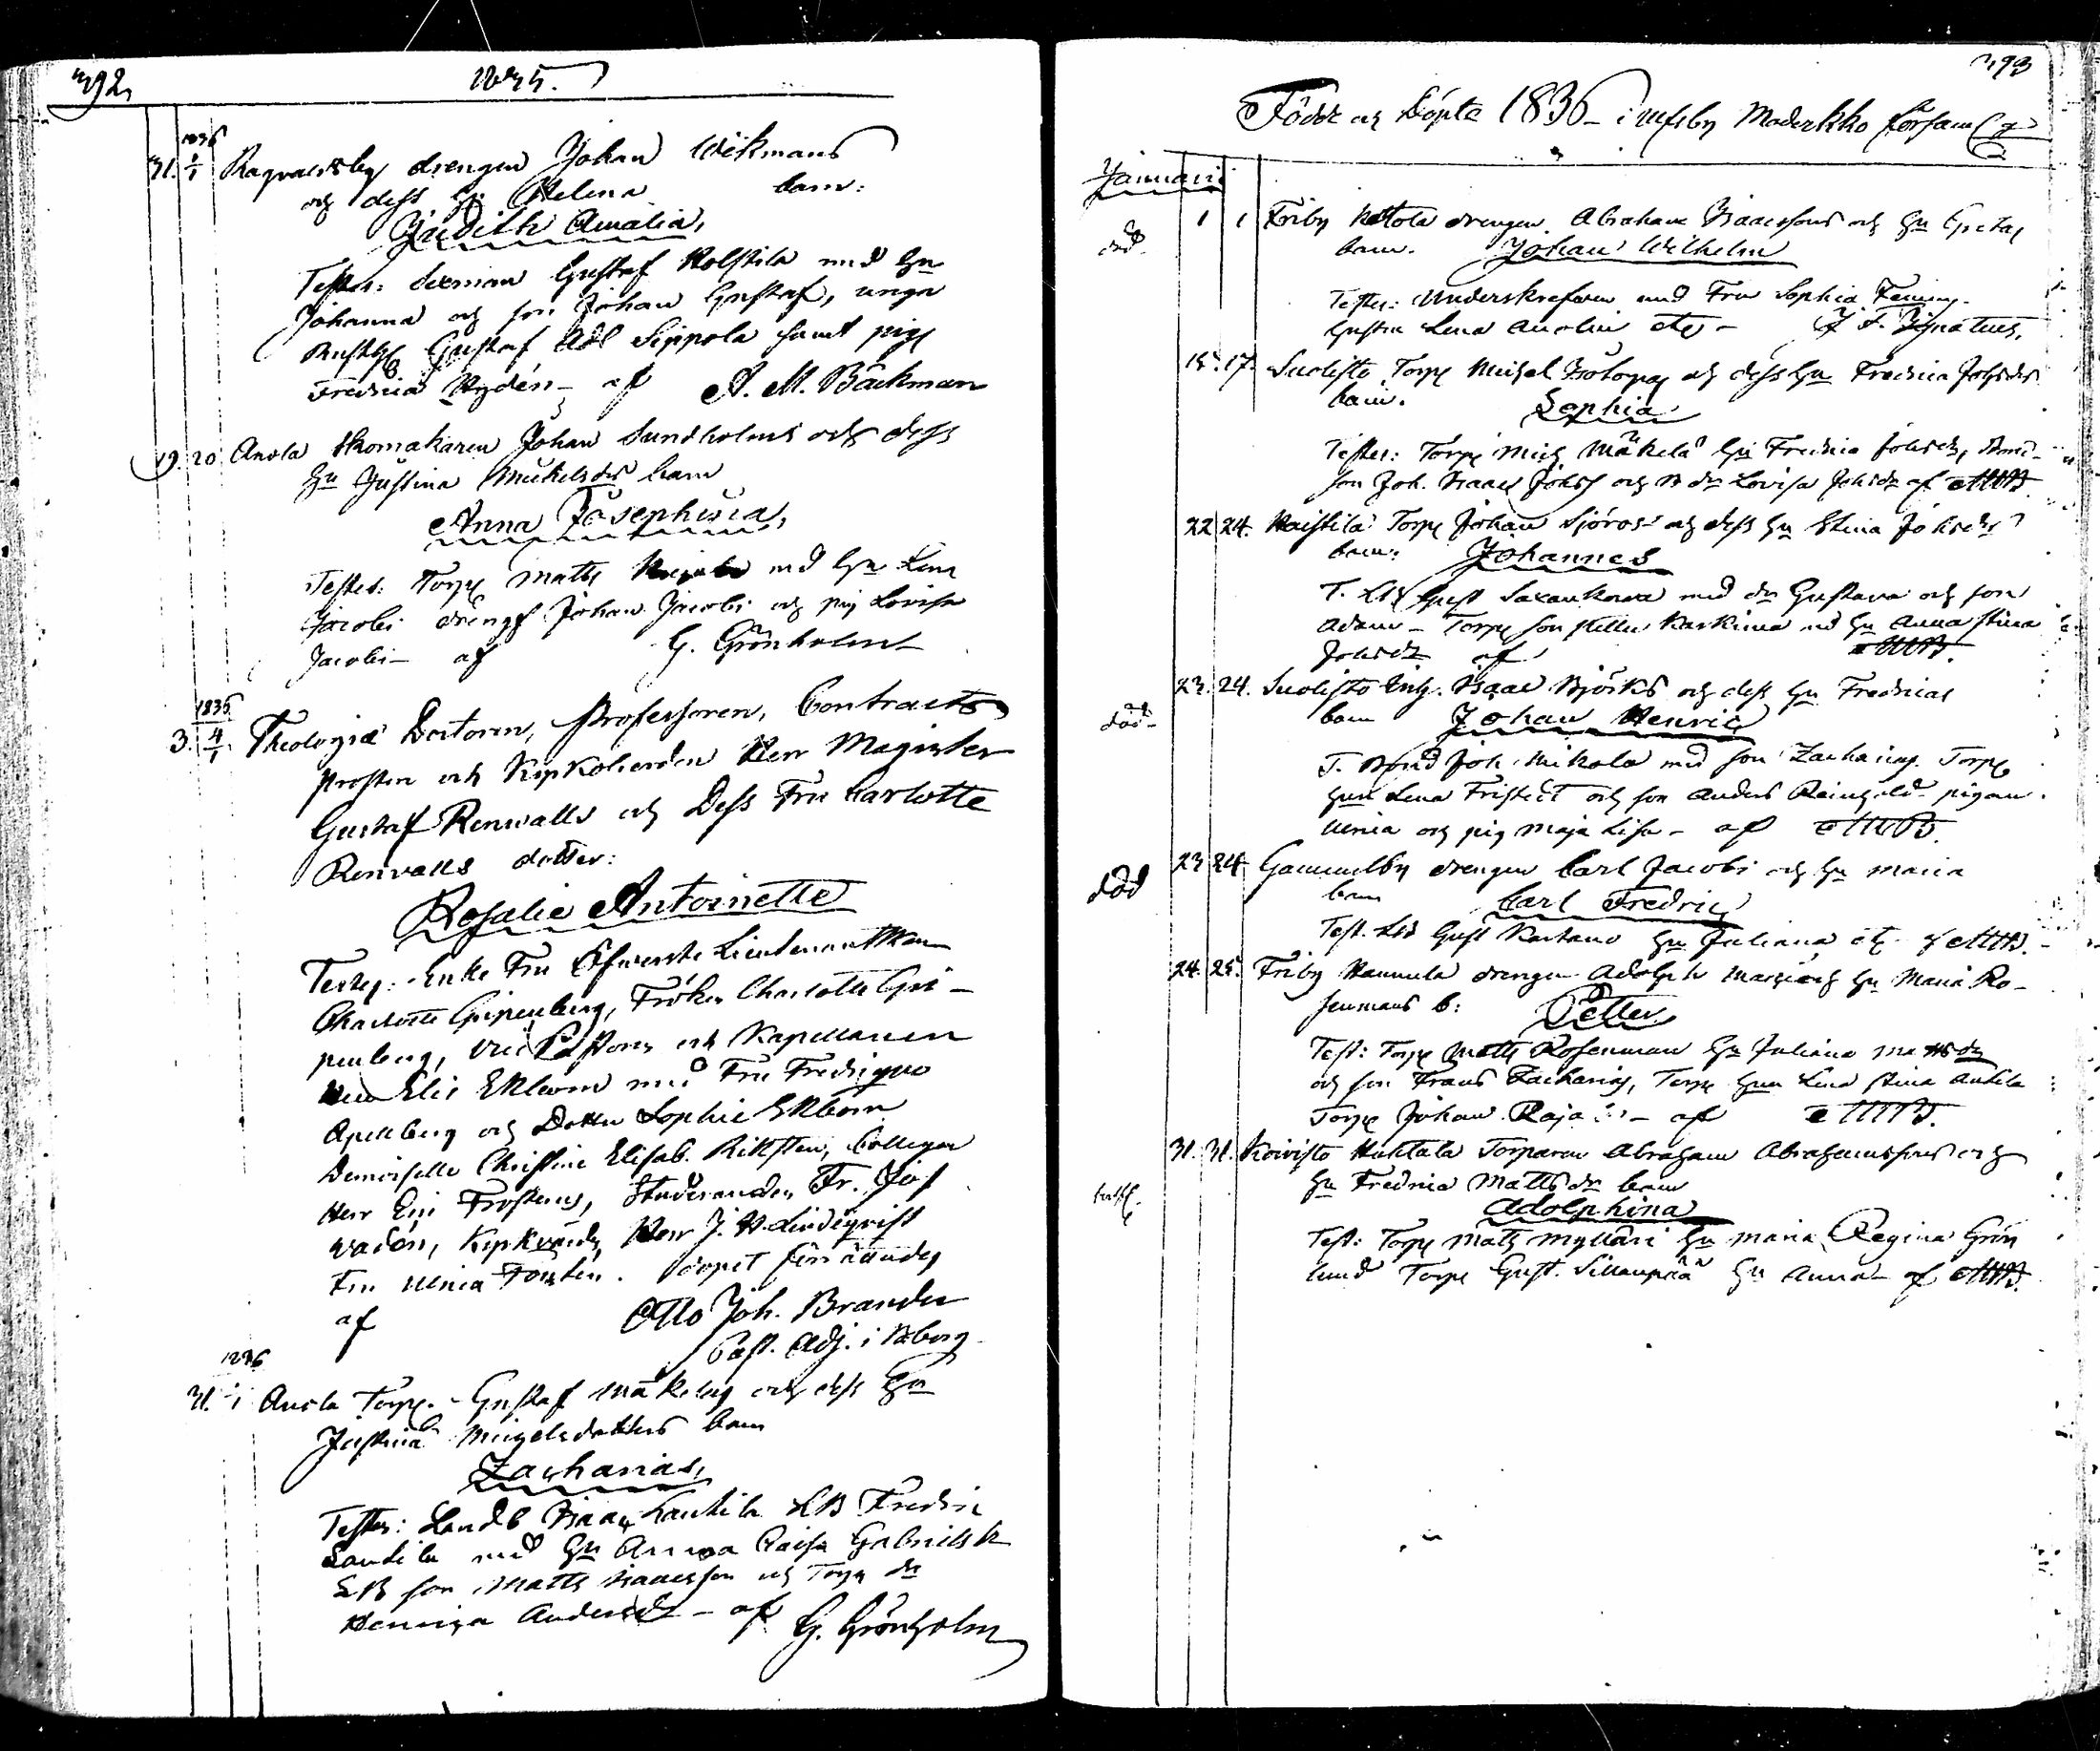 392
1835.
1836
31. 1/1 Ragvaldsby drengen Johan Wikmans
och dess Hu Helena barn:
Judith Amalia,
Testes: Sexman Gustaf Rolstila med Hu
Johanna och son Johan Gustaf, unga
Gustaf Adl Sippola samt pig
Fredrica Rydén - af A. M. Bäckman
19. 20 Anola Skomakaren Johan Sundholms och dess
Hu Justina Mickelsdrs barn
Anna Josephina,
Testes: Torp Matts med Hu Lena
Jacobi drengs Johan Jacobi och pig Lovisa
Jacobi - af G. Grönholm
1836
3. 4/1 Theologiæ Doctoren, Professoren, Contracts
Prosten och Kyrkoherden Herr Magister
Gustaf Renvalls och Dess Fru Carlotte
Renvalls dotter:
Rosalie Antoinette
Testes: Enke Fru Öfwerste Lieutenantskan
Charlotte Gripenberg, Fröken Charlotte Gri-
penberg, Vice Pastorn och Kapellanen
Herr Elis Ekbom med Fru Fredrique
Apelberg och Dotter Sophie Ekbom
Demoiselle Christine Elisab. Kihlsten, Collegan
Herr Frosterus, Studeranden Fr. Jos
wadén, Herr J. H. Lindeqvist
Fru Ulrica Forstén. döpet förrättades
af Otto Joh. Brander
Past. Adj. i Nborg.
1836
31. 1/1 Anola Torp. Gustaf Mäkelas och dess Hu
Justina Michelsdotters barn
Zacharias,
Testes: Landb Isaac Lantila LB Fredric
Lantila med Hu Anna Caisa Gabrielsdr
LB son Matts Isaacsson och Torp dr
Henrica Andersdr - af G. Grönholm
393
Födde och Döpte 1836 - i Ulfsby Moderkko församlg
Januarii
död. 1 1 Friby Nottola drengen Abraham Isaacssons och Hu Gretas
barn. Johan Wilhelm
Testes: Underskrefwen med Fru Sophia
Gustra Lena etc - J. F. Ignatius.
15. 17. Suolisto Torp Michel och dess Hu Fredrica Johsdrs
barn. Sophia
Testes: Torp Mich Mäkelä Hu Fredrica Johsdr, Bond-
son Joh. Isaac Johss och B dr Lovisa Johsdr af AMB
22 24. Haistila Torp Johan Sjöros och dess Hu Stina Johsdrs
barn: Johannes
T. Gust Saxankowa med dr Gustava och son
Adam - Torp son Kaskima md Hu Anna Stina
Johsdr af AMB.
död 23. 24. Suolisto Isaac Björks och dess Hu Fredricas
barn Johan Henric
T. Bond Joh Mikola med son Zacharias. Torp
Lena Fristedt och son Anders Reinhold pigan
Ulrica och pig Maja Lisa - af AMB.
död 23 24 Gammelby drengen Carl Jacobi och Hu Maria
barn Carl Fredric
Test. Gust Kartano Hu Juliana etc. af AMB.
24. 25. Friby Hannula drengen Adolph och Hu Maria Ro-
senmans b: Petter
Test: Torp Matts Rosenman Hu Juliana Mattsdr
och son Frans Zacharias, Torp Lena Stina Antila
Torp Johan Raja - af AMB.
31. 31. Koivisto Huhtala Torparen Abraham Abrahamssons och
Hu Fredrica Mattsdr barn
Adolphina
Test: Torp Matts Myllari Hu Maria, Regina Grön
lund Torp Gust. Sillanpää Hu Anna - af AMB.